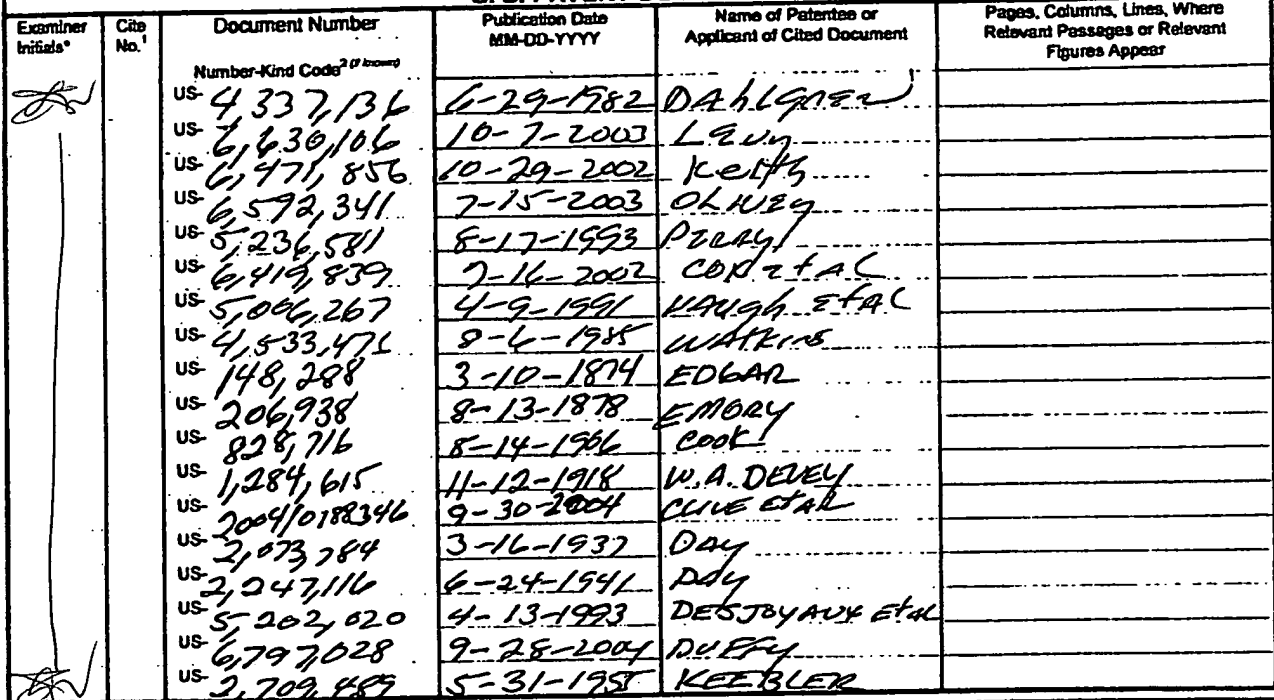 Examiner Initials* Cite No.1 Document Number Publication Date MM-DD-YYYY Name of Patentee or Applicant of Cited Document Pages, Columns, Lines, Where Relevant Passages or Relevant Figures Appear
Number-Kind Code2 (if known)
US- 4,337,136 6-29-1982 DAhlgren
US- 6,630,106 10-7-2003 Levy
US- 6,471,856 10-29-2002 Keith
US- 6,592,341 7-15-2003 OLNEY
US- 5,236,581 8-17-1993 Perry
US- 6,419,839 7-16-2002 COX et AL
US- 5,006,267 4-9-1991 VAUGh EtAL
US- 4,533,471 8-6-1985 WATKINS
US- 148,288 3-10-1874 EDGAR
US- 206,938 8-13-1878 EMORY
US- 828,716 8-14-1906 COOK
US- 1,284,615 11-12-1918 W.A. DEVEY
US- 2004/0188346 9-30-2004 CLIVE EtAL
US- 2,073,784 3-16-1937 DAy
US- 2,247,116 6-24-1941 DAy
US- 5,202,020 4-13-1993 DESJOYAUX EtAL
US- 6,797,028 9-28-2004 DUFFy
US- 2,709,489 5-31-1955 KEEBLER